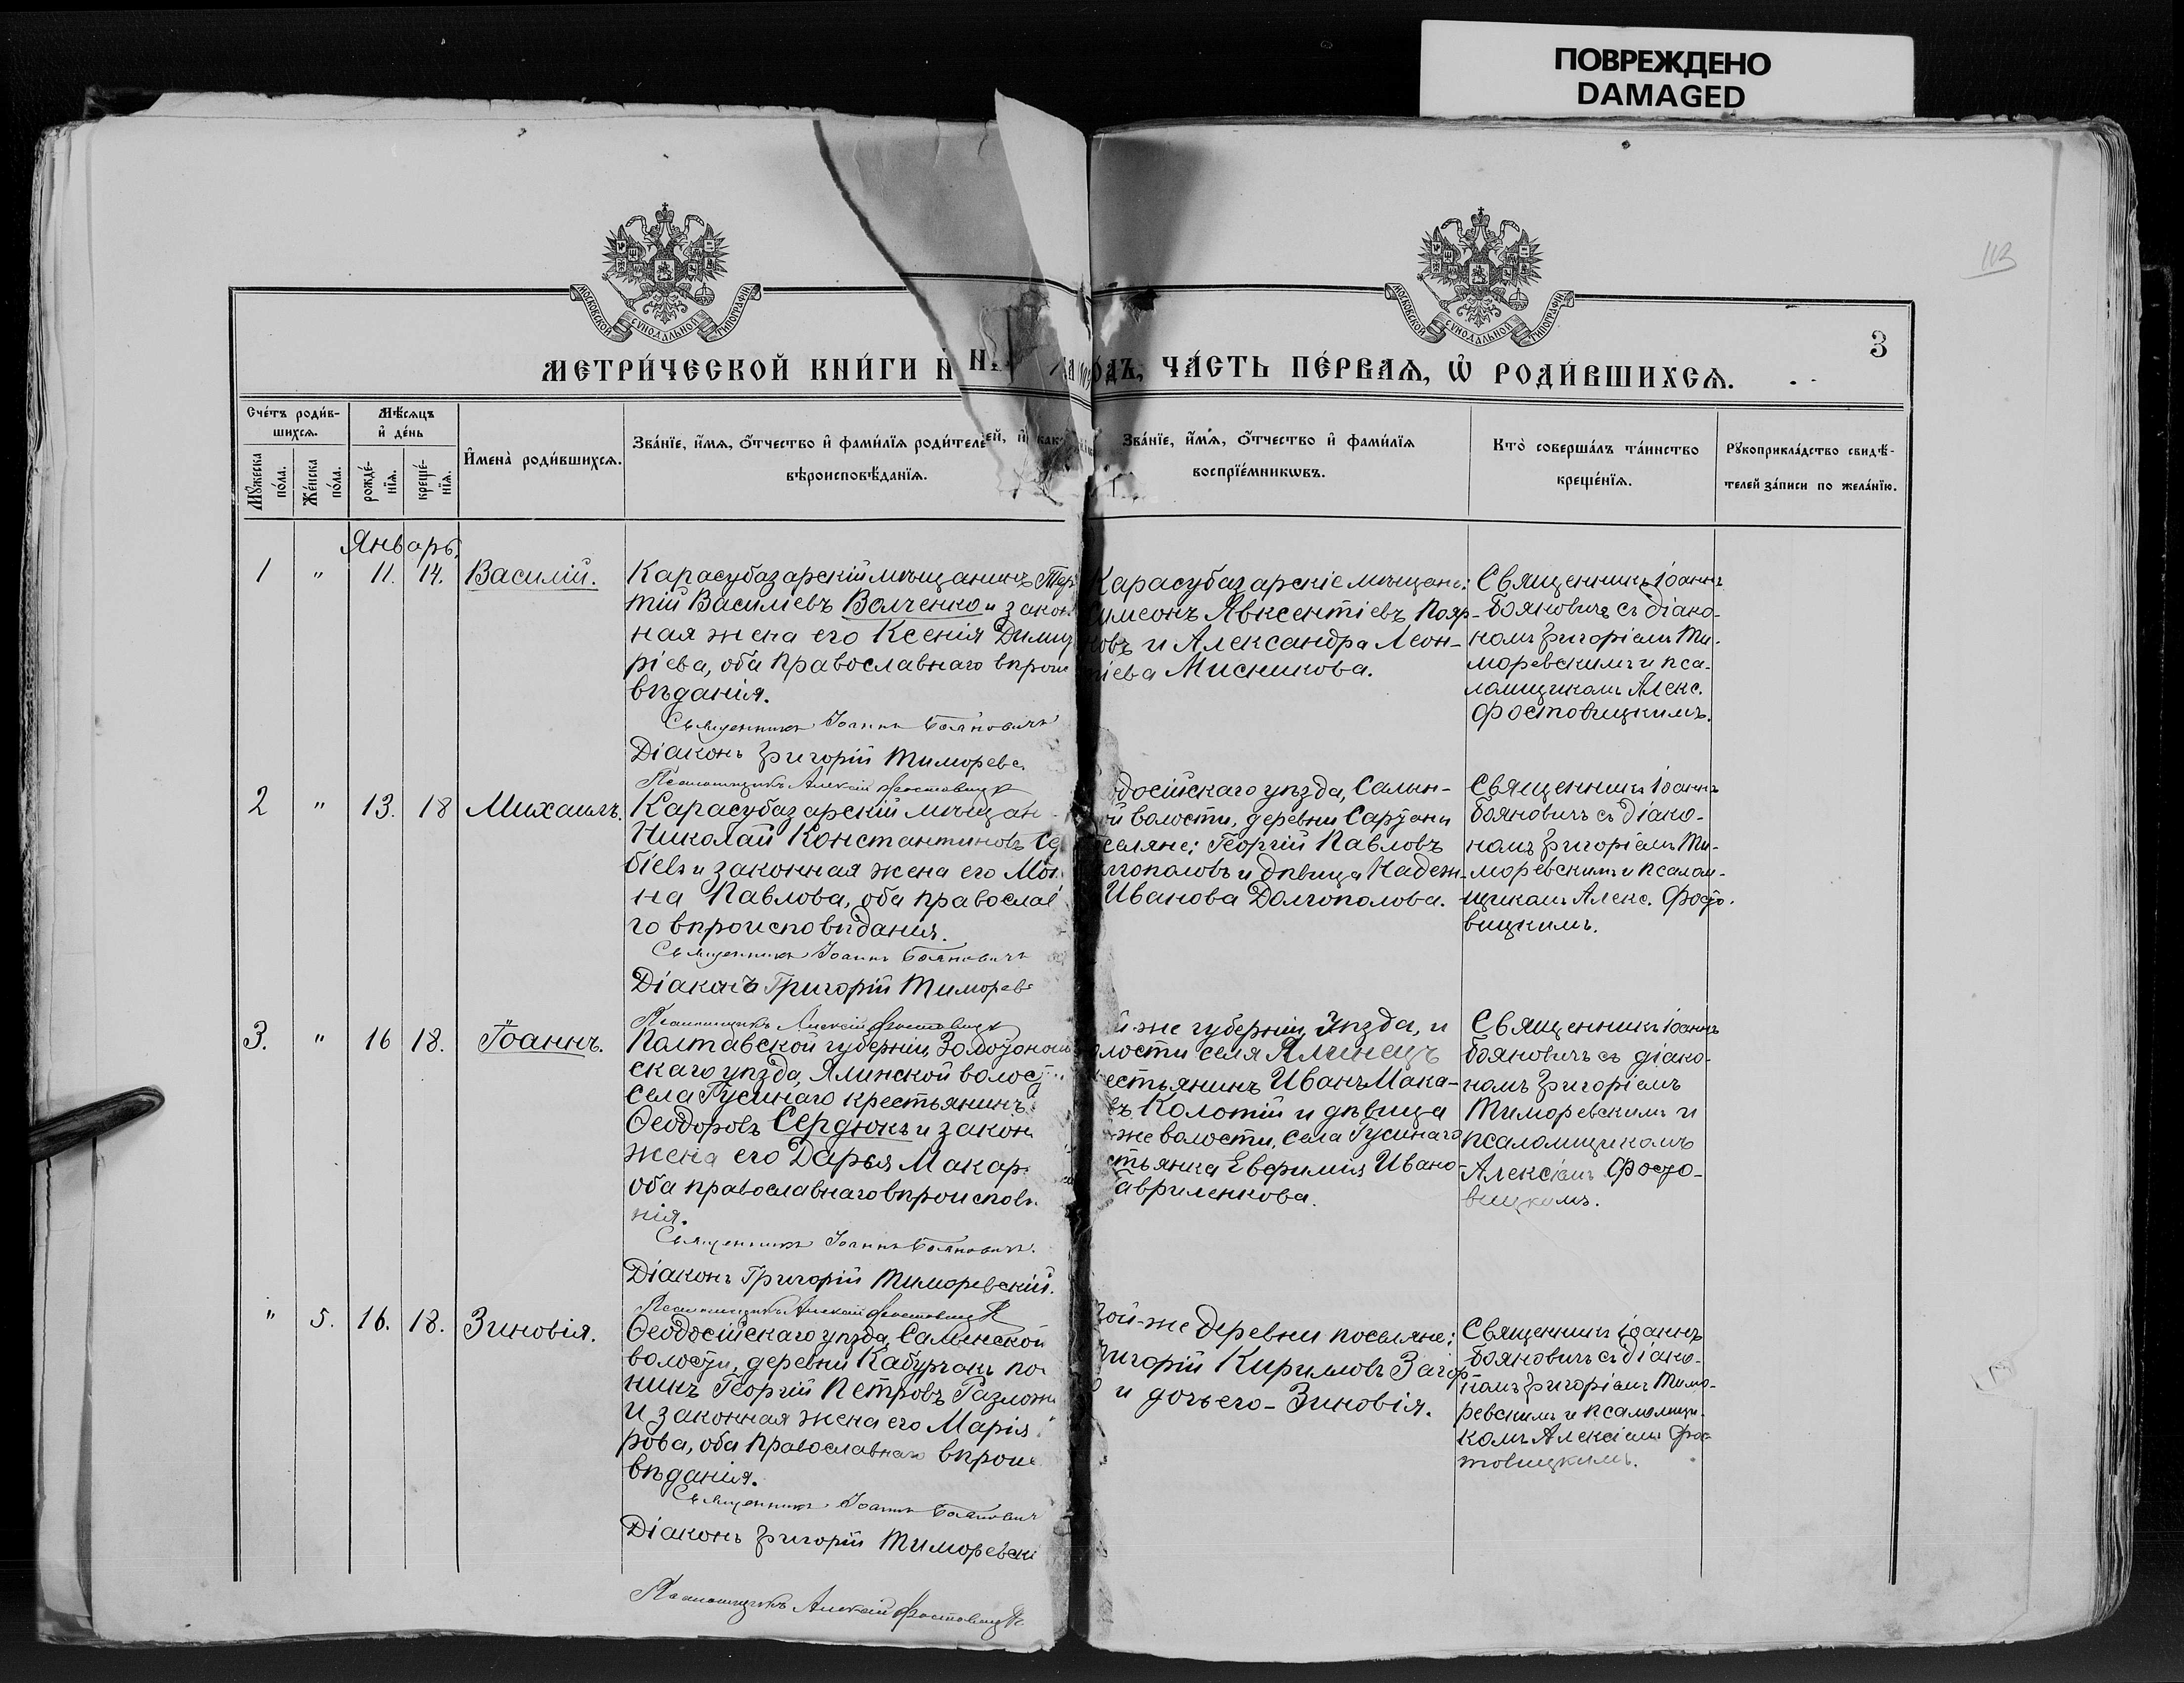 ПОВРЕЖДЕНО
DAMAGED
113
МОСКОВСКОЙ СѴНОДАЛЬНОЙ ТИПОГРАФІИ
МОСКОВСКОЙ СѴНОДАЛЬНОЙ ТИПОГРАФІИ
3
МЕТРИ́ЧЕСКОЙ КНИ́ГИ
ЧА́СТЬ ПЕ́РВАѦ, Ѡ҆ РОДИ́ВШИХСѦ.
Сче́тъ роди́в-
шихсѧ.
Мѣ́сѧцъ
и҆ де́нь
Мꙋ́жеска
по́ла.
Же́нска
по́ла.
рожде́-
нїѧ.
креще́-
нїѧ.
И҆мена̀ роди́вшихсѧ.
Зва́нїе, и҆́мѧ, ѻ҆́тчество и҆ фами́лїѧ роди́телей, и҆
вѣроисповѣ́данїѧ.
Зва́нїе, и҆́мѧ, ѻ҆́тчество и҆ фами́лїѧ
воспрїе́мникѡвъ.
Кто̀ соверша́лъ та́инство
креще́нїѧ.
Рꙋкоприкла́дство свидѣ́-
телей за́писи по жела́нїю.
Январь.
1 " 11. 14. Василій.
Карасубазарскій мѣщанинъ
тій Васильевъ Волченко и закон
ная жена его Ксенія Димит
ріева, оба православнаго вѣроис
вѣданія.
Священникъ Іоаннъ Бояновичъ
Діаконъ Григорій Тиморевс
Псаломщикъ Алексій Фостовицк
Карасубазарскіе мѣщане:
Симеонъ Авксентіевъ Пояр-
ковъ и Александра Леон-
тіева Мисникова.
Священникъ Іоаннъ
Бояновичъ съ діако-
номъ Григоріемъ Ти-
моревскимъ и пса-
ломщикомъ Алекс.
Фостовицкимъ.
2 " 13. 18 Михаилъ.
Карасубазарскій мѣщан
Николай Константиновъ
и законная жена его
на Павлова, оба православ
го вѣроисповѣданія.
Священникъ Іоаннъ Бояновичъ
Діаконъ Григорій Тиморевс
Псаломщикъ Алексій Фостовицк
одосійскаго уѣзда, Салын-
ой волости, деревни Саруани
селяне: Георгій Павловъ
лгополовъ и дѣвица Надеж-
Иванова Долгополова.
Священникъ Іоаннъ
Бояновичъ съ діако-
номъ Григоріемъ Ти-
моревскимъ и псалом-
щикомъ Алекс. Фосто-
вицкимъ.
3. " 16 18. Іоаннъ.
Полтавской губерніи, Золотонош
скаго уѣзда, Ялинской волост
села Гусинаго крестьянинъ
Ѳеодоровъ Сердюкъ и закон
жена его Дарья Макар
оба православнаго вѣроисповѣ
нія.
Священникъ Іоаннъ Бояновичъ.
Діаконъ Григорій Тиморевскій.
Псаломщикъ Алексій Фостовицк
й-же губерніи, уѣзда, и
лости села Ялинецъ
естьянинъ Иванъ Мака-
въ Колотій и дѣвица
же волости, села Гусинаго
стьянка Евфимія Ивано-
авриленкова.
Священникъ Іоаннъ
Бояновичъ съ діако-
номъ Григоріемъ
Тиморевскимъ и
псаломщикомъ
Алексіемъ Фосто-
вицкимъ.
" 5. 16. 18. Зиновія.
Ѳеодосійскаго уѣзда, Салынской
волости, деревни Кабурчакъ по
нинъ Георгій Петровъ Разлож
и законная жена его Марія
рова, оба православнаго вѣроис
вѣданія.
Священникъ Іоаннъ Бояновичъ
Діаконъ Григорій Тиморевскі
Псаломщикъ Алексій Фостовицк
той-же деревни поселяне:
Григорій Кириловъ Загор
и дочь его - Зиновія.
Священникъ Іоаннъ
Бояновичъ съ діако-
номъ Григоріемъ Тимо-
ревскимъ и псаломщи-
комъ Алексіемъ Фос-
товицкимъ.